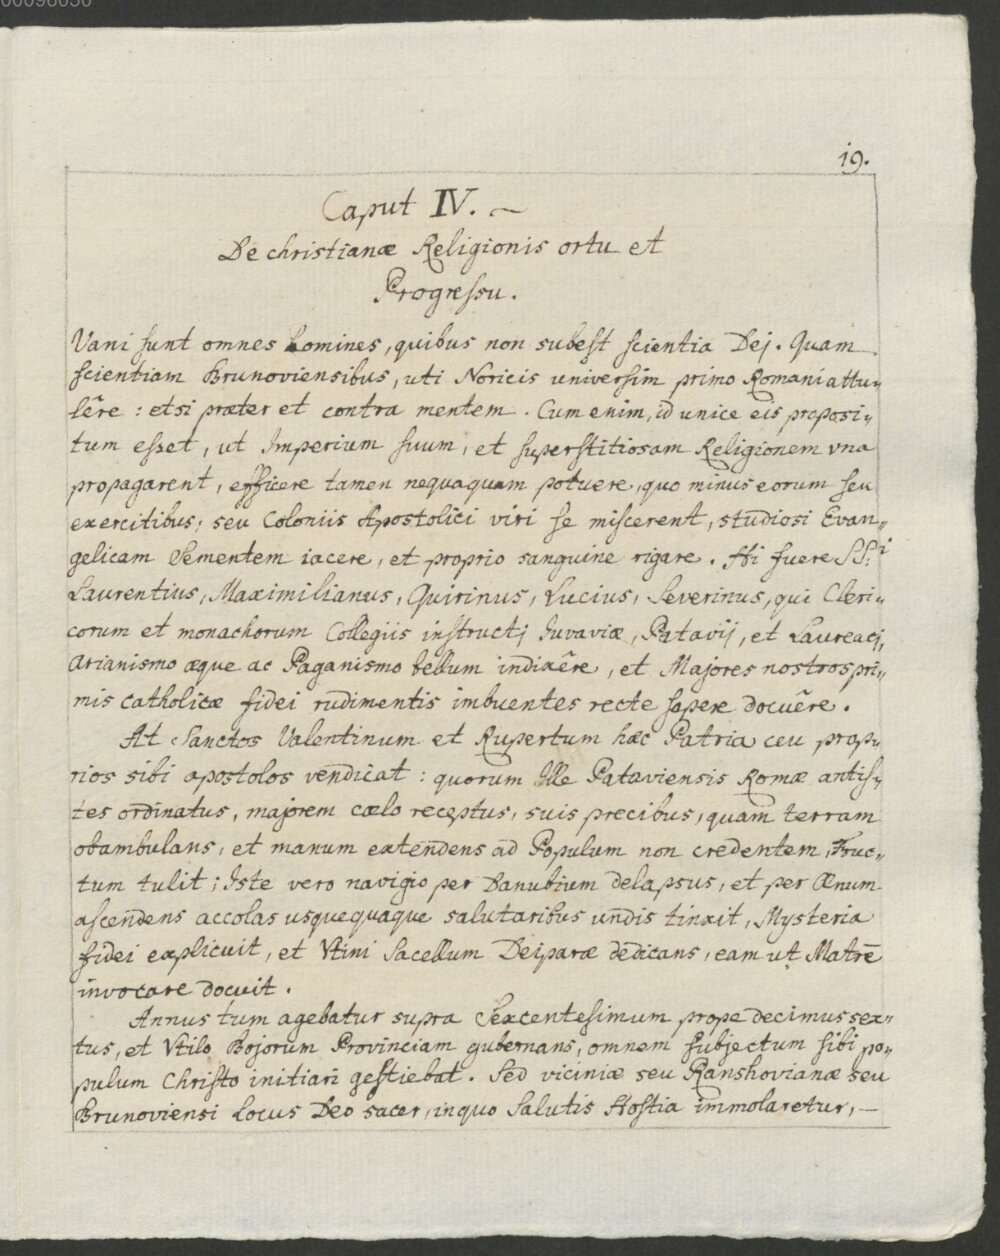 00096050
19.
Caput IV. ~
De christianæ Religionis ortu et
Progreſsu.
Vani ſunt omnes homines, quibus non subeſt ſcientia Dej. Quam
ſcientiam Brunoviensibus, uti Noricis universim primo Romani attu„
lêre : etsi præter et contra mentem. Cum enim, id unice eis proposi„
tum esset, ut Imperium ſuum, et ſuperſtitiosam Religionem vna
propagarent, efficere tamen nequaquam potuere, quo minus eorum ſeu
exercitibus, seu Coloniis Apostolici viri ſe miſcerent, studiosi Evan„
gelicam Sementem iacere, et proprio sanguine rigare. Hi fuere SS:i
Laurentius, Maximilianus, Quirinus, Lucius, Severinus, qui Cleri„
corum et monachorum Collegiis inſtructj Juvaviæ, Patavij, et Laureacj,
Arianismo æque ac Paganismo bellum indixêre, et Majores nostros pri„
mis catholicæ fidei rudimentis imbuentes recte ſapere docuêre.
At Sanctos Valentinum et Rupertum hæc Patria ceu prop„
rios sibi apostolos vendicat : quorum Ille Pataviensis Romæ antiſ„
tes ordinatus, majorem cœlo receptus, suis precibus, quam terram
obambulans, et manum extendens ad Populum non credentem, Fruc„
tum tulit ; Iste vero navigio per Danubium delapsus, et per Œnum
aſcendens accolas usquequaque salutaribus undis tinxit, Mysteria
fidei explicuit, et Vtini Sacellum Deiparæ dedicans, eam ut Matrē
invocare docuit.
Annus tum agebatur supra Sexcentesimum prope decimus sex„
tus, et Vtilo Bojorum Provinciam gubernans, omnem ſubjectum ſibi po„
pulum Chriſto initiari geſtiebat. Sed viciniæ seu Ranshovianæ seu
Brunoviensi Locus Deo sacer, in quo Salutis Hoſtia immolaretur, —